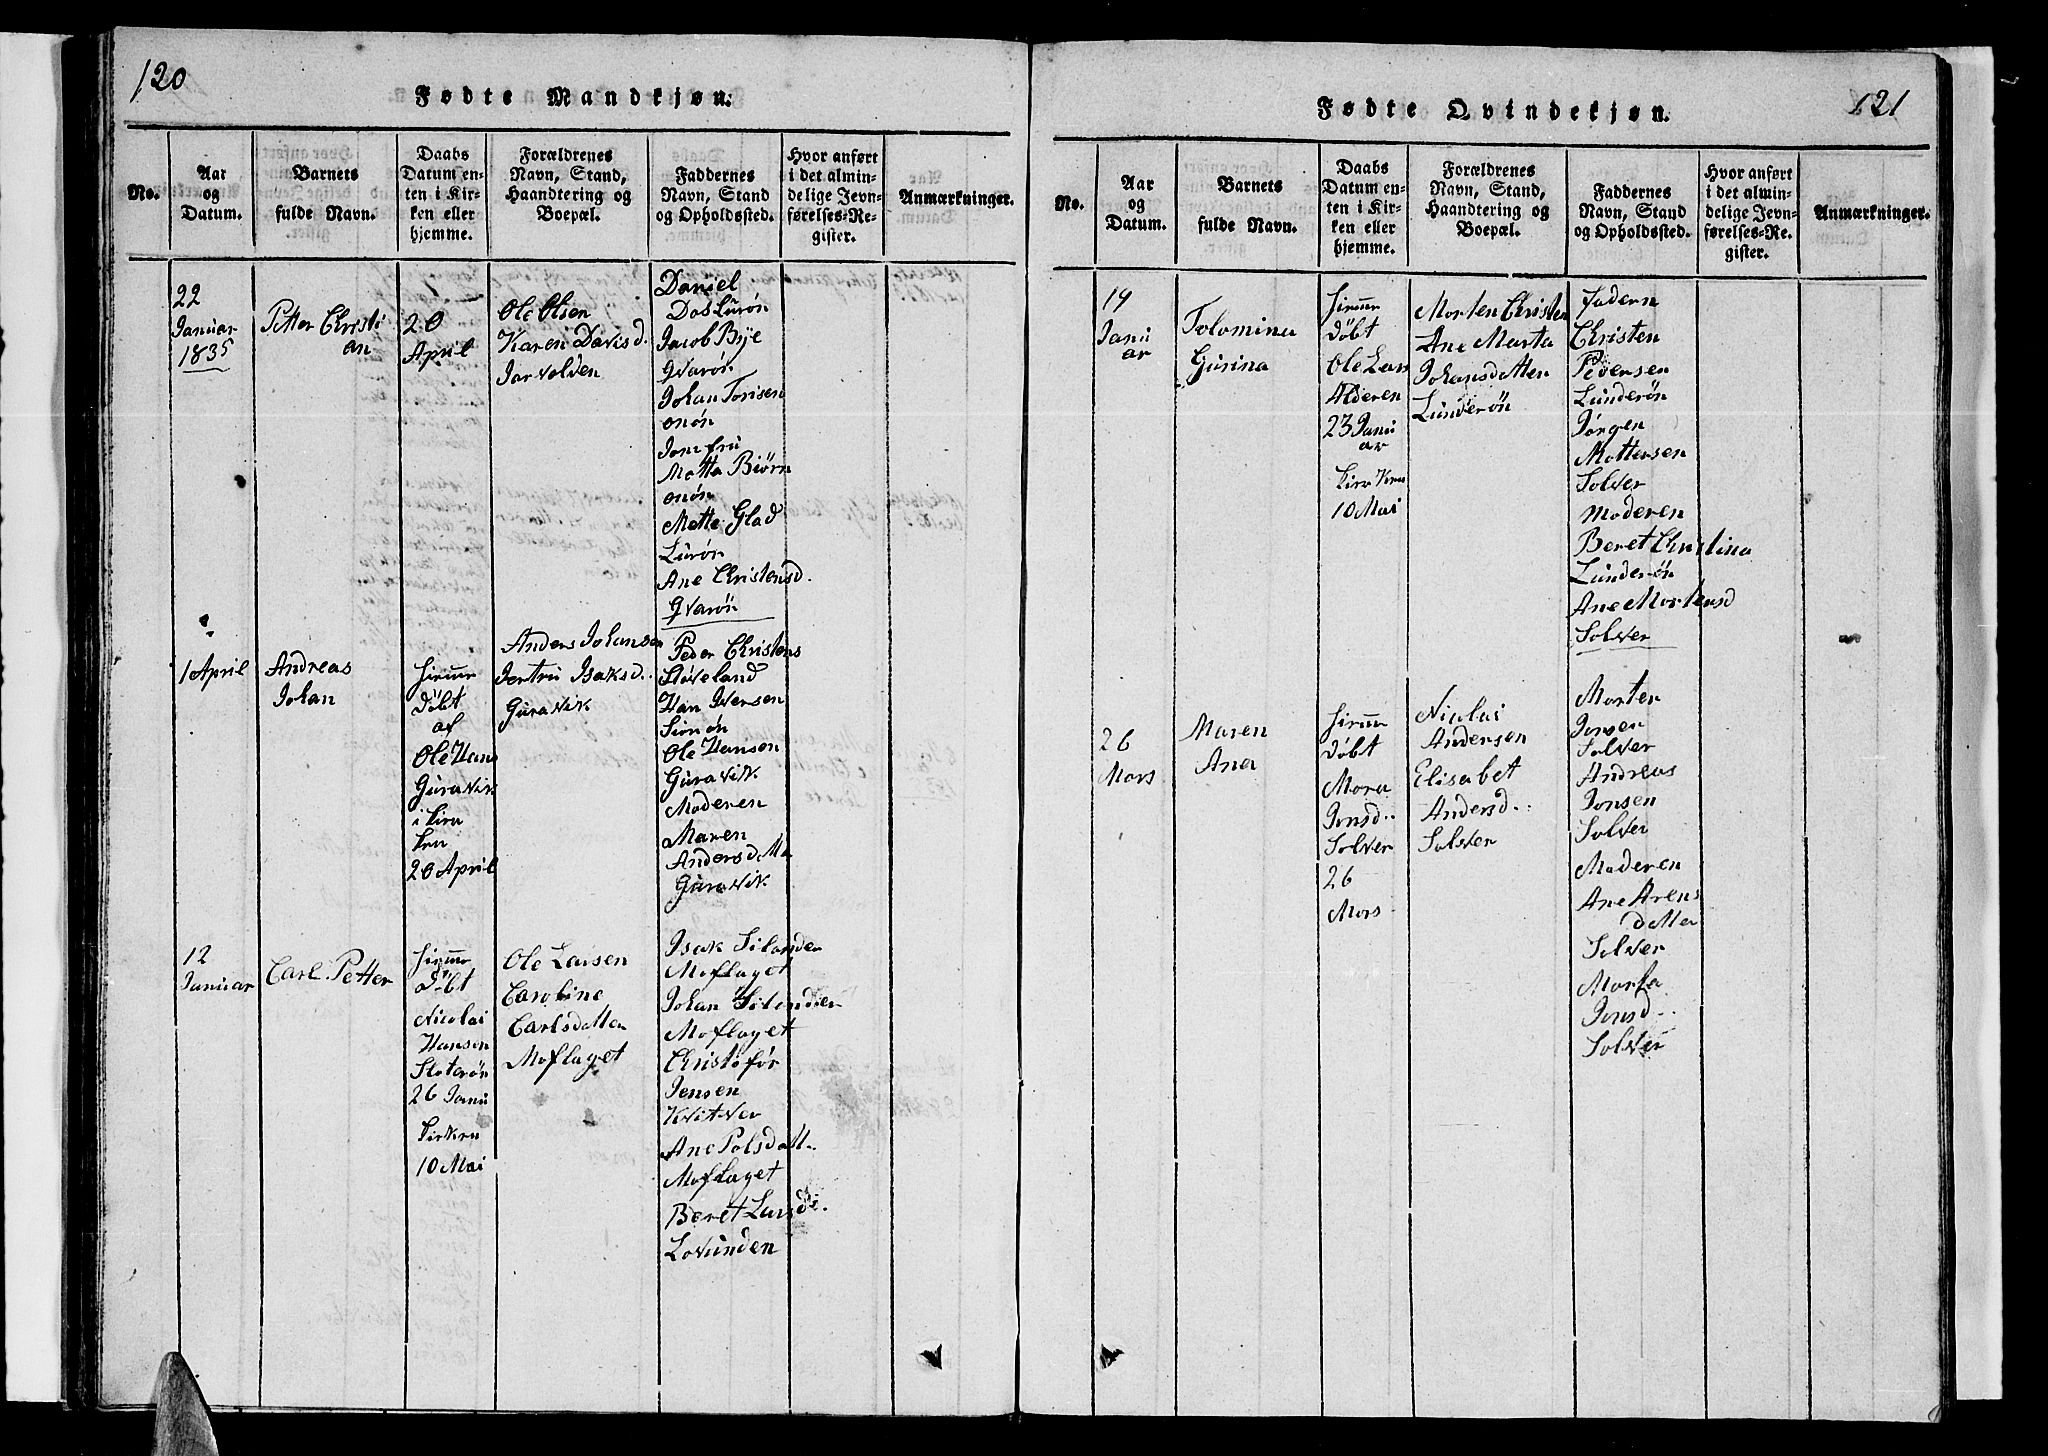 120
Fødte Mandkjøn.
No.
Aar
og
Datum.
Barnets
fulde Navn.
Daabs
Datum en-
ten i Kir-
ken eller
hjemme.
Forældrenes
Navn, Stand,
Haandtering og
Boepæl.
Faddernes
Navn, Stand
og Opholdssted.
Hvor anført
i det almin-
delige Jevn-
førelses-Re-
gister.
Anmærkninger.
22
Januar
1835
Petter Christi
an
20
April
Ole Olsen
Karen Davisd.
Daniel
Dos Lurøn
Jacob Bye
Gvarøn
Johan Torisen
onøn
Jomfru
Metta Biørn
onøn
Mette Glad
Lurøn
Ane Christensd.
Gvarøn
1 April
Andreas
Johan
Døbt
af
Ole Hans
Guravik
i
20 April
Anders Johansen
Jertru Isaksd.
Guravik
Peder Christens
Støveland
Han Iversen
Ole Hansen
Guravik
Moderen
Maren
Andersd
Guravik
12
Januar
Carl Petter
Døbt
Nicolai
Hansen
Sloterøn
26 Janu
10 Mai
Ole Larsen
Caroline
Carlsdatter
Moflaget
Isak Silander
Moflaget
Johan Silender
Moflaget
Christofør
Jensen
Kvitver
Ane Polsdatt
Moflaget
Beret Larsd.
Lovunden
121
Fødte Qvindekjøn.
No.
Aar
og
Datum.
Barnets
fulde Navn.
Daabs
Datum en-
ten i Kir-
ken eller
hjemme.
Forældrenes
Navn, Stand,
Haandtering og
Boepæl.
Faddernes
Navn, Stand
og Opholdssted.
Hvor anført
i det almin-
delige Jevn-
førelses-Re-
gister.
Anmærkninger.
19
Janu
ar
Tolomina
Gurina
Døbt
Ole Lars
Alderen
23 Janu
ar
10 Mai
Morten Christen
Ane Marta
Johansdatter
Lunderøn
Fadern
Christen
Pedersen
Lunderøn
Jørgen
Mottesen
Solver
Moderen
Beret Christina
Lunderøn
Ane Mortensd
Solver
26
Mars
Maren
Ana
Døbt
Jonsd.
Solver
26
Mors
Nicolai
Andersen
Elisabet
Andersd.
Solver
Morten
Jonsen
Solver
Andreas
Jonsen
Solver
Moderen
Ane Arens
datter
Solver
Morta
Jonsd.
Solver